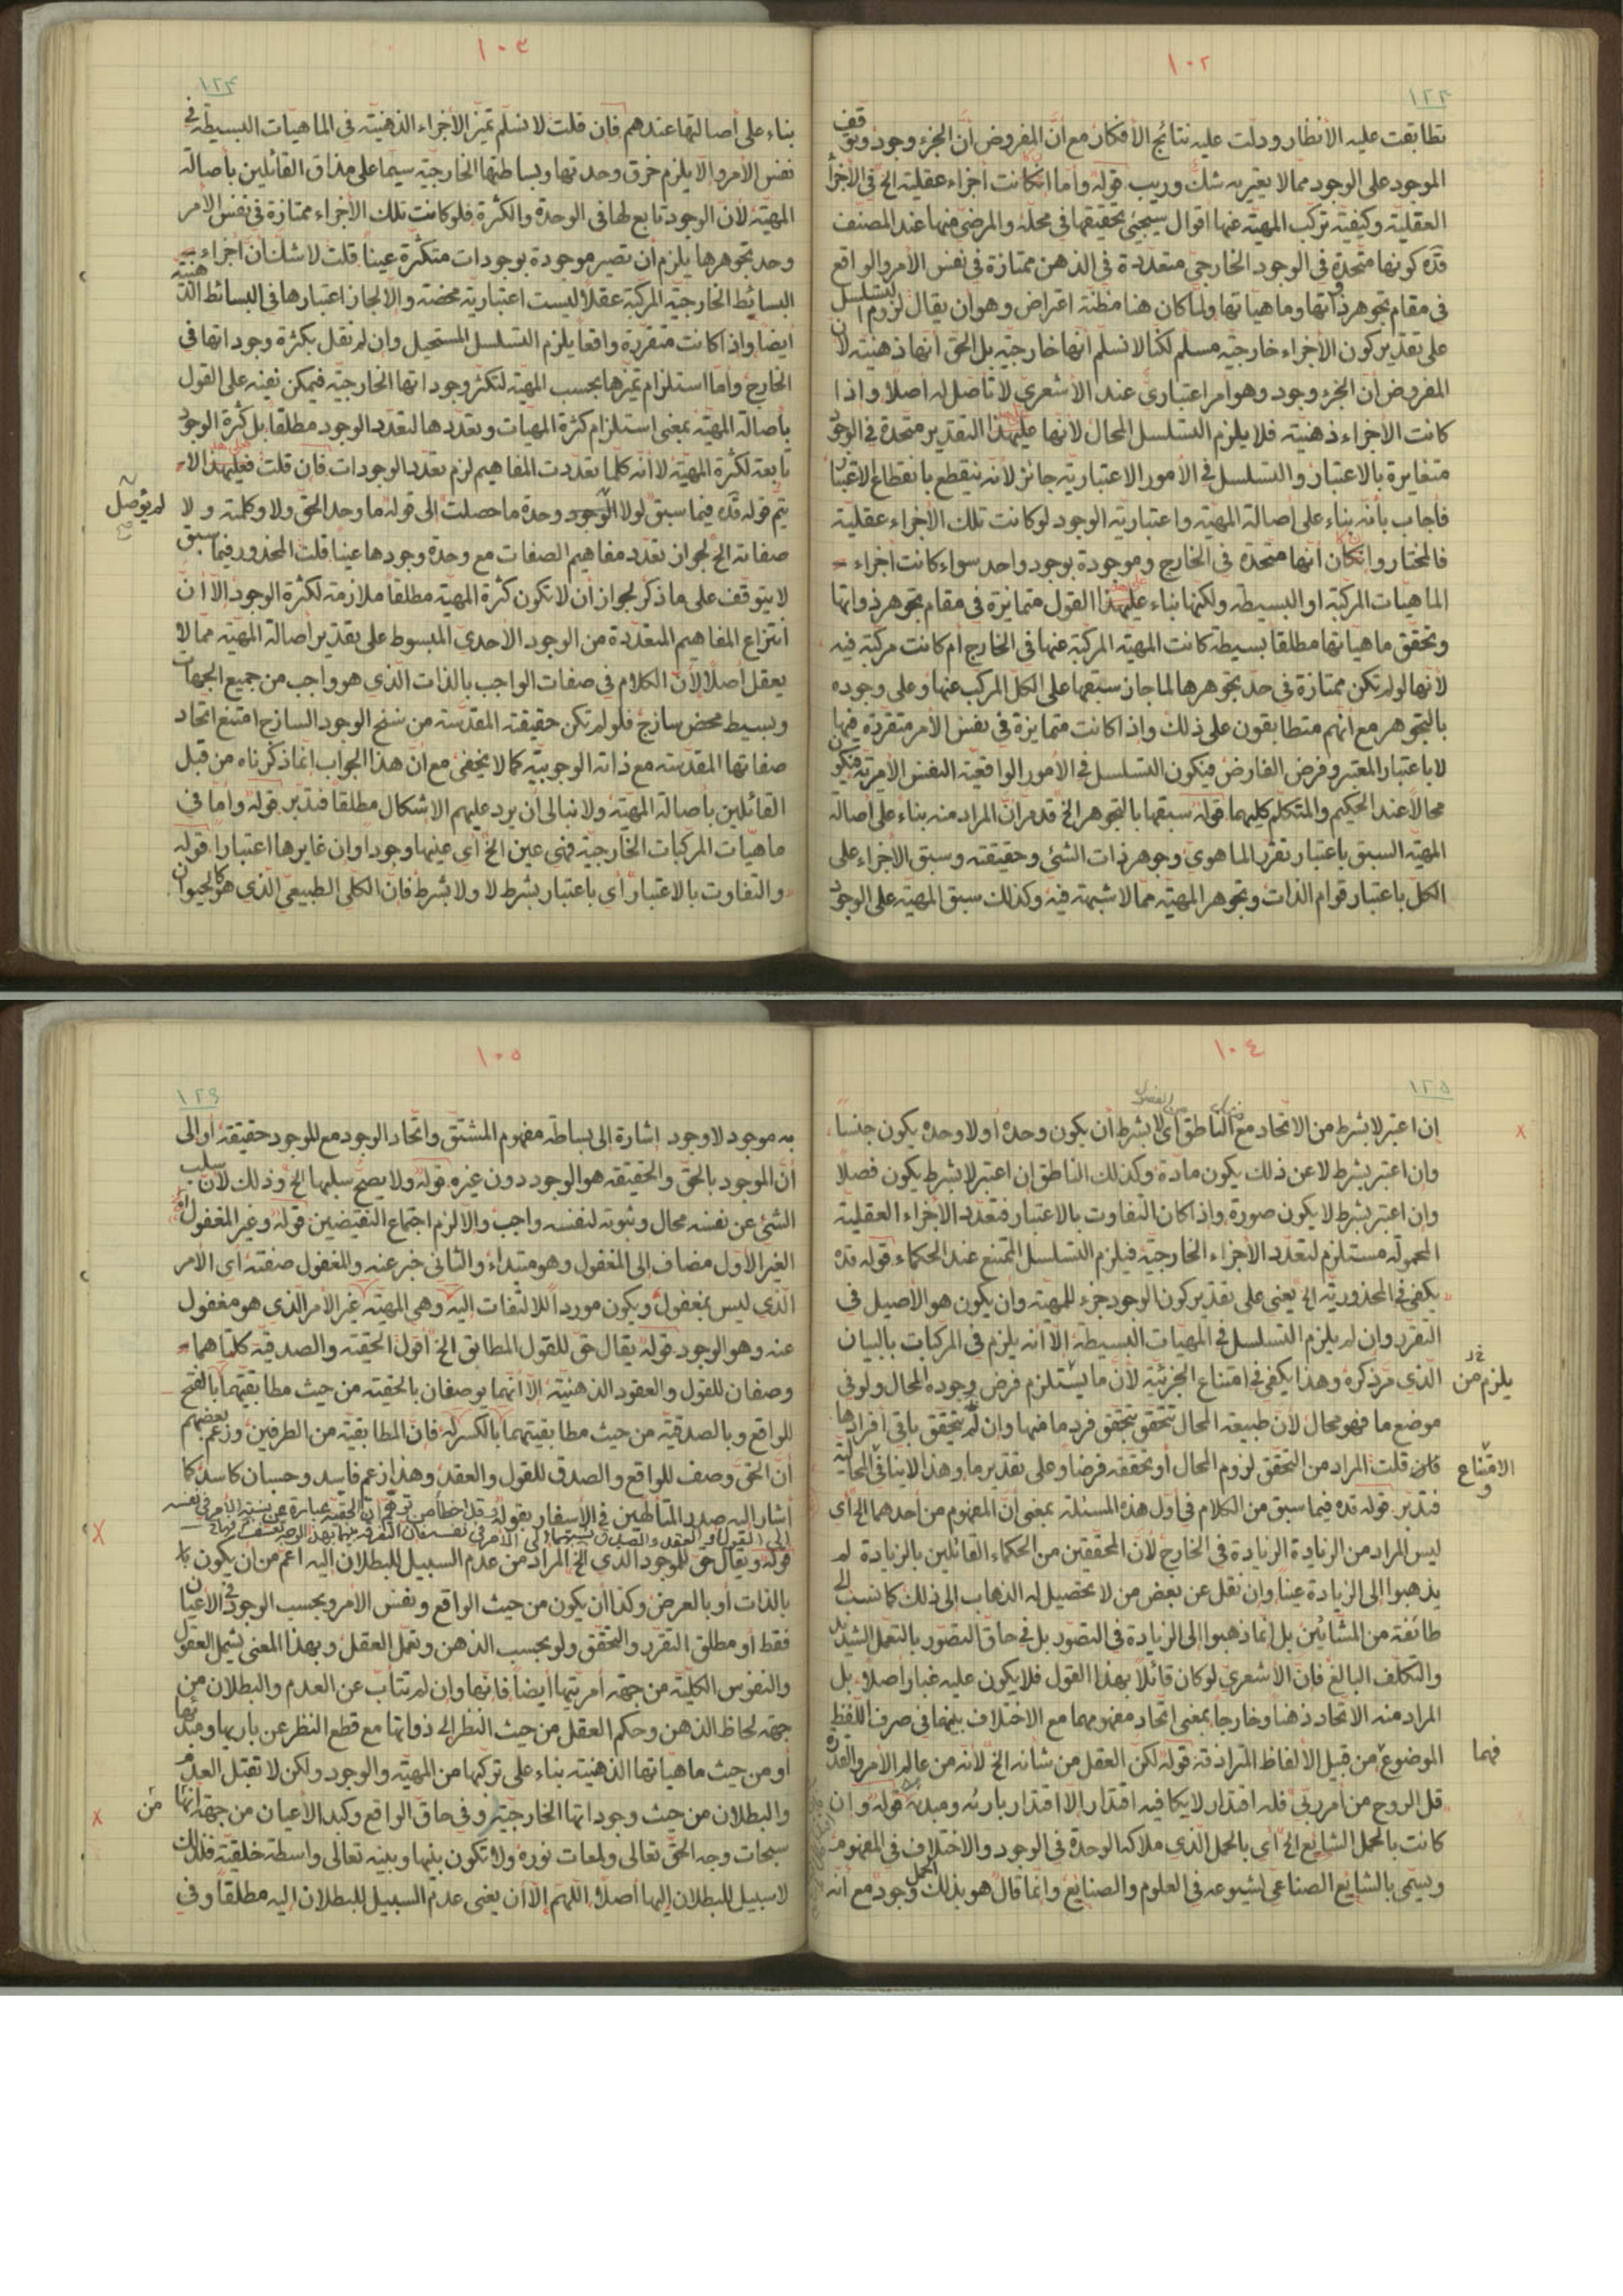 ١٠٢
١٢٣
تطابقت عليه الأنظار ودلت عليه نتائج الأفكار مع أنّ المفروض أنّ الجزء وجود وتوقف
الموجود على الوجود ممالا يعتريه شك وريب قوله وأما ان كانت أجزاء عقلية الخ في الأجزاء
العقلية وكيفية تركب المهية عنها اقوال سيجيئ تحقيقها في محله والمرضي منها عند المصنف
قده كونها متحدة في الوجود الخارجي متعددة في الذهن ممتازة في نفس الأمر والواقع
في مقام تجوهر ذواتها وماهياتها ولما كان هنا مظنة اعتراض وهو ان يقال لزوم التسلسل
على تقدير كون الأجزاء خارجية مسلم لكنا لا نسلم أنها خارجية بل الحق أنها ذهنية لأن
المفروض أن الجزء وجود وهو امر اعتباري عند الأشعري لا تأصل له أصلا واذا
كانت الأجزاء ذهنية فلا يلزم التسلسل المحال لأنها على هذا التقدير متحدة في الوجود
متغايرة بالاعتبار والتسلسل في الأمور الاعتبارية جائز لأنه ينقطع بانقطاع الاعتبار
فأجاب بأنه بناء على أصالة المهية واعتبارية الوجود لو كانت تلك الأجزاء عقلية
فالمختار وان كان أنها متحدة في الخارج وموجودة بوجود واحد سواء كانت أجزاء
الماهيات المركبة او البسيطة ولكنها بناء على هذا القول متمايزة في مقام تجوهر ذواتها
وتحقق ماهياتها مطلقا بسيطة كانت المهية المركبة عنها في الخارج أم كانت مركبة فيه
لأنها لو لم تكن ممتازة في حد تجوهرها لما جاز سبقها على الكل المركب عنها وعلى وجوده
بالتجوهر مع انهم متطابقون على ذلك واذا كانت متمايزة في نفس الأمر متقررة فيها
لا باعتبار المعتبر وفرض الفارض فيكون التسلسل في الأمور الواقعية النفس الأمرية فيكون
محالا عند الحكيم والمتكلم كليهما قوله سبقها بالتجوهر الخ قد مر أن المراد منه بناء على أصالة
المهية السبق باعتبار تقرر الماهوي وجوهر ذات الشئ وحقيقته وسبق الأجزاء على
الكل باعتبار قوام الذات وتجوهر المهية مما لا شبهة فيه وكذلك سبق المهية على الوجود
١٠٣
١٢٤
بناء على أصالتها عندهم فان قلت لا نسلم تميز الأجزاء الذهنية في الماهيات البسيطة في
نفس الأمر والا يلزم خرق وحدتها وبساطتها الخارجية سيما على مذاق القائلين بأصالة
المهية لأن الوجود تابع لها في الوحدة والكثرة فلو كانت تلك الأجزاء ممتازة في نفس الأمر
وحد تجوهرها يلزم أن تصير موجودة بوجودات متكثرة عينا قلت لا شك ان أجزاء
البسائط الخارجية المركبة عقلا ليست اعتبارية محضة والا لجاز اعتبارها في البسائط الذهنية
أيضا واذا كانت متقررة واقعا يلزم التسلسل المستحيل وان لم نقل بكثرة وجوداتها في
الخارج وأما استلزام تميزها بحسب المهية لتكثر وجوداتها الخارجية فيمكن نفيه على القول
بأصالة المهية بمعنى استلزام كثرة المهيات وتعددها لتعدد الوجود مطلقا بل كثرة الوجود
تابعة لكثرة المهية لا أنه كلما تعددت المفاهيم لزم تعدد الوجودات فان قلت فعلى هذا لا
يتم قوله قده فيما سبق لو لا الوجود وحدة ما حصلت إلى قوله ما وحد الحق ولا وكلمته ولا
لم يؤصل
صفاته الخ لجواز تعدد مفاهيم الصفات مع وحدة وجودها عينا قلت المحذور فيما سبق
لا يتوقف على ما ذكر لجواز أن لا تكون كثرة المهية مطلقا ملازمة لكثرة الوجود إلا أن
انتزاع المفاهيم المتعددة من الوجود الأحدي المبسوط على تقدير أصالة المهية مما لا
يعقل أصلا لأن الكلام في صفات الواجب بالذات الذي هو واجب من جميع الجهات
وبسيط محض ساذج فلو لم تكن حقيقته المقدسة من سنخ الوجود الساذج امتنع اتحاد
صفاتها المقدسة مع ذاته الوجوبية كما لا يخفى مع أن هذا الجواب انما ذكرناه من قبل
القائلين بأصالة المهية ولا نبالي أن يرد عليهم الإشكال مطلقا فتدبر قوله وأما في
ماهيات المركبات الخارجية فهي عين الخ أي عينها وجودا وان غايرها اعتبارا قوله
والتفاوت بالاعتبار أي باعتبار بشرط لا ولا بشرط فان الكلي الطبيعي الذي هو كالحيوان
١٠٤
١٢٥
ان اعتبر لا بشرط من الاتحاد مع الناطق أي لا بشرط أن يكون وحده أو لا وحده يكون جنسا
وان اعتبر بشرط لا عن ذلك يكون مادة وكذلك الناطق إن اعتبر لا بشرط يكون فصلا
وإن اعتبر بشرط لا يكون صورة وإذا كان التفاوت بالاعتبار فتعدد الأجزاء العقلية
المحمولة مستلزم لتعدد الأجزاء الخارجية فيلزم التسلسل الممتنع عند الحكماء قوله قده
يكفي في المحذورية الخ يعني على تقدير كون الوجود جزء للمهية وان يكون هو الأصيل في
التقرر وان لم يلزم التسلسل في المهيات البسيطة الا أنه يلزم في المركبات بالبيان
الذي مر ذكره وهذا يكفي في امتناع الجزئية لأن ما يستلزم فرض وجوده المحال ولو في
يلزم من
موضع ما فهو محال لأن طبيعة المحال تتحقق بتحقق فرد ما منها وان لم يتحقق باقي أفرادها
فان قلت المراد من التحقق لزوم المحال أو تحققه فرضا وعلى تقدير ما وهذا لا ينافي المحالية
الامتناع و
فتدبر قوله قده فيما سبق من الكلام في أول هذه المسئلة بمعنى أن المفهوم من أحدهما الخ أي
ليس المراد من الزيادة الزيادة في الخارج لأن المحققين من الحكماء القائلين بالزيادة لم
يذهبوا إلى الزيادة عينا وان نقل عن بعض من لا تحصيل له الذهاب إلى ذلك كما نسب إلى
طائفة من المشائين بل انما ذهبوا إلى الزيادة في التصور بل في حاق التصور بالتعمل الشديد
والتكلف البالغ فان الأشعري لو كان قائلا بهذا القول فلا يكون عليه غبار أصلا بل
المراد منه الاتحاد ذهنا وخارجا بمعنى اتحاد مفهومهما مع الاختلاف بينهما في صرف اللفظ
الموضوع من قبيل الألفاظ المترادفة قوله لكن العقل من شأنه الخ لأنه من عالم الأمر والقدرة
فهما
قل الروح من أمر ربي فله اقتدار لا يكافيه اقتدار إلا اقتدار بارئه ومبدئه قوله وان
كانت بالحمل الشايع الخ أي بالحمل الذي ملاكه الوحدة في الوجود والاختلاف في المفهوم
ويسمى بالشايع الصناعي لشيوعه في العلوم والصنايع وانما قال هو بذلك الحمل وجود مع أنه
١٠٥
١٢٦
به موجود لا وجود إشارة إلى بساطة مفهوم المشتق واتحاد الوجود مع الموجود حقيقة أو إلى
أن الموجود بالحق والحقيقة هو الوجود دون غيره قوله ولا يصح سلبها الخ وذلك لأن سلب
الشئ عن نفسه محال وثبوته لنفسه واجب والا لزم اجتماع النقيضين قوله وغير المغفول
الغير الأول مضاف إلى المغفول وهو مبتداء والثاني خبر عنه والمغفول صفته أي الأمر
الذي ليس بمغفول ويكون موردا للالتفات إليه وهي المهية غير الأمر الذي هو مغفول
عنه وهو الوجود قوله يقال حق للقول المطابق الخ أقول الحقية والصدقية كلتاهما
وصفان للقول والعقود الذهنية إلا انهما يوصفان بالحقية من حيث مطابقيتهما بالفتح
للواقع وبالصدقية من حيث مطابقيتهما بالكسر له فان المطابقية من الطرفين وزعم بعضهم
أن الحق وصف للواقع والصدق للقول والعقد وهذا زعم فاسد وحسبان كاسد كما
أشار إليه صدر المتألهين في الأسفار بقوله قد أخطأ من توهم ان الحقية عبارة عن نسبة الأمر في نفسه
إلى القول أو العقد والصدق نسبتهما إلى الأمر في نفسه فان التفرقة بينهما بهذا الوجه تعسف
قوله ويقال حق للموجود الذي الخ المراد من عدم السبيل للبطلان إليه أعم من ان يكون
بالذات أو بالعرض وكذا أن يكون من حيث الواقع ونفس الأمر وبحسب الوجود في الأعيان
فقط أو مطلق التقرر والتحقق ولو بحسب الذهن وتعمل العقل وبهذا المعنى يشمل العقول
والنفوس الكلية من جهة أمريتها أيضا فانها وان لم تتأب عن العدم والبطلان من
جهة لحاظ الذهن وحكم العقل من حيث النظر إلى ذواتها مع قطع النظر عن باريها ومبدئها
أو من حيث ماهياتها الذهنية بناء على تركبها من المهية والوجود ولكن لا تقبل العدم
والبطلان من حيث وجوداتها الخارجية وفي حاق الواقع وكبد الأعيان من جهة انها
من
سبحات وجه الحق تعالى ولمعات نوره ولا تكون بينها وبينه تعالى واسطة خلقية فلذلك
لا سبيل للبطلان إليها أصلا اللهم إلا أن يعنى عدم السبيل للبطلان إليه مطلقا وفي